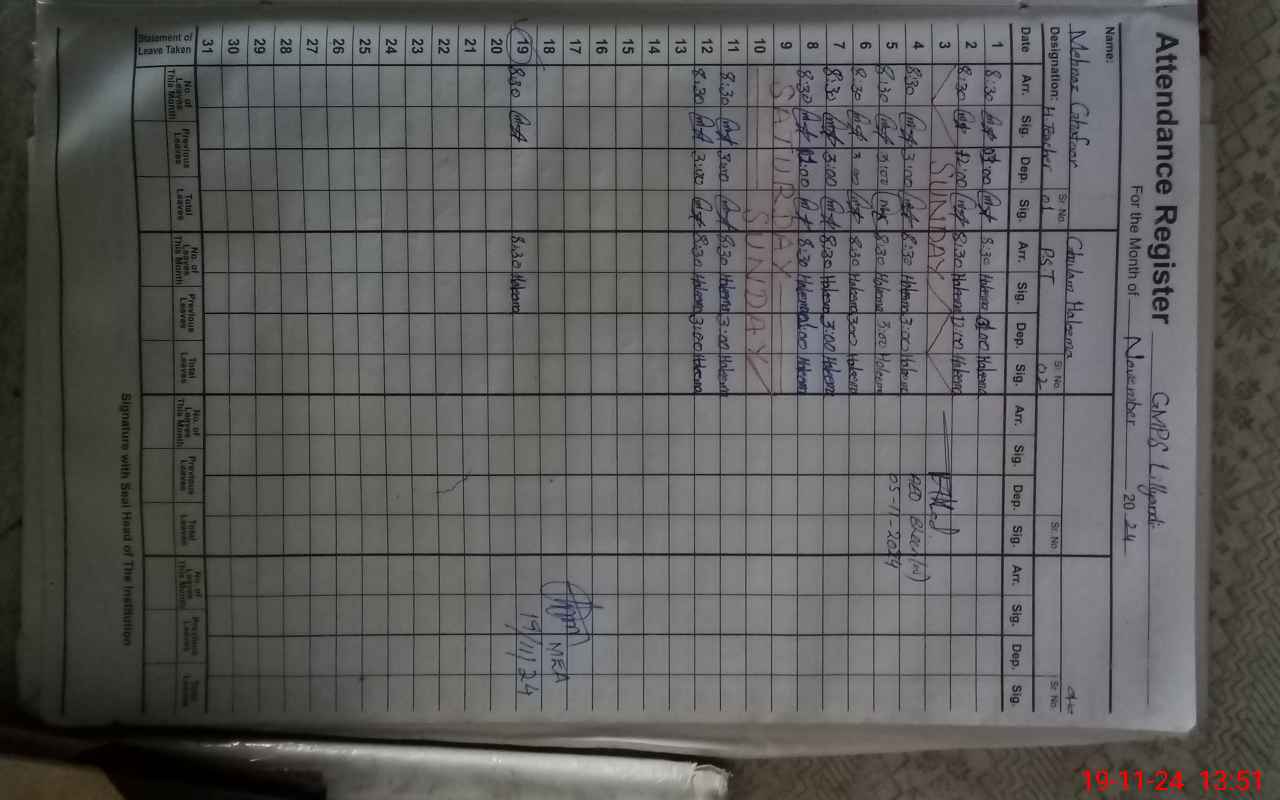 Attendance Register GMPS Lillyandi
For the Month of November 2024
Name: Mehnaz Ghafoor Ghulam Haleema
Designation: H. Teacher Sr. No. 01 PST Sr. No. 02 Sr. No. Sr. No.
Date Arr. Sig. Dep. Sig. Arr. Sig. Dep. Sig. Arr. Sig. Dep. Sig. Arr. Sig. Dep. Sig.
1 8:30 :00 8:30 Haleema :00 Haleema
2 8:30 12:00 8:30 Haleema 12:00 Haleema
3 SUNDAY
4 8:30 3:00 8:30 Haleema 3:00 Haleema AEO
5 8:30 3:00 8:30 Haleema 3:00 Haleema 05-11-2024
6 8:30 3:00 8:30 Haleema 3:00 Haleema
7 8:30 3:00 8:30 Haleema 3:00 Haleema
8 8:30 :00 8:30 Haleema :00 Haleema
9 SATURDAY
10 SUNDAY
11 8:30 3:00 8:30 Haleema 3:00 Haleema
12 8:30 3:00 8:30 Haleema 3:00 Haleema
13
14
15
16
17
18 MEA
19 8:30 8:30 Haleema 19/11/24
20
21
22
23
24
25
26
27
28
29
30
31
Statement of Leave Taken
No. of Leaves This Month Previous Leaves Total Leaves No. of Leaves This Month Previous Leaves Total Leaves No. of Leaves This Month Previous Leaves Total Leaves No. of Leaves This Month Previous Leaves Total Leaves
Signature with Seal Head of The Institution
19-11-24 13:51